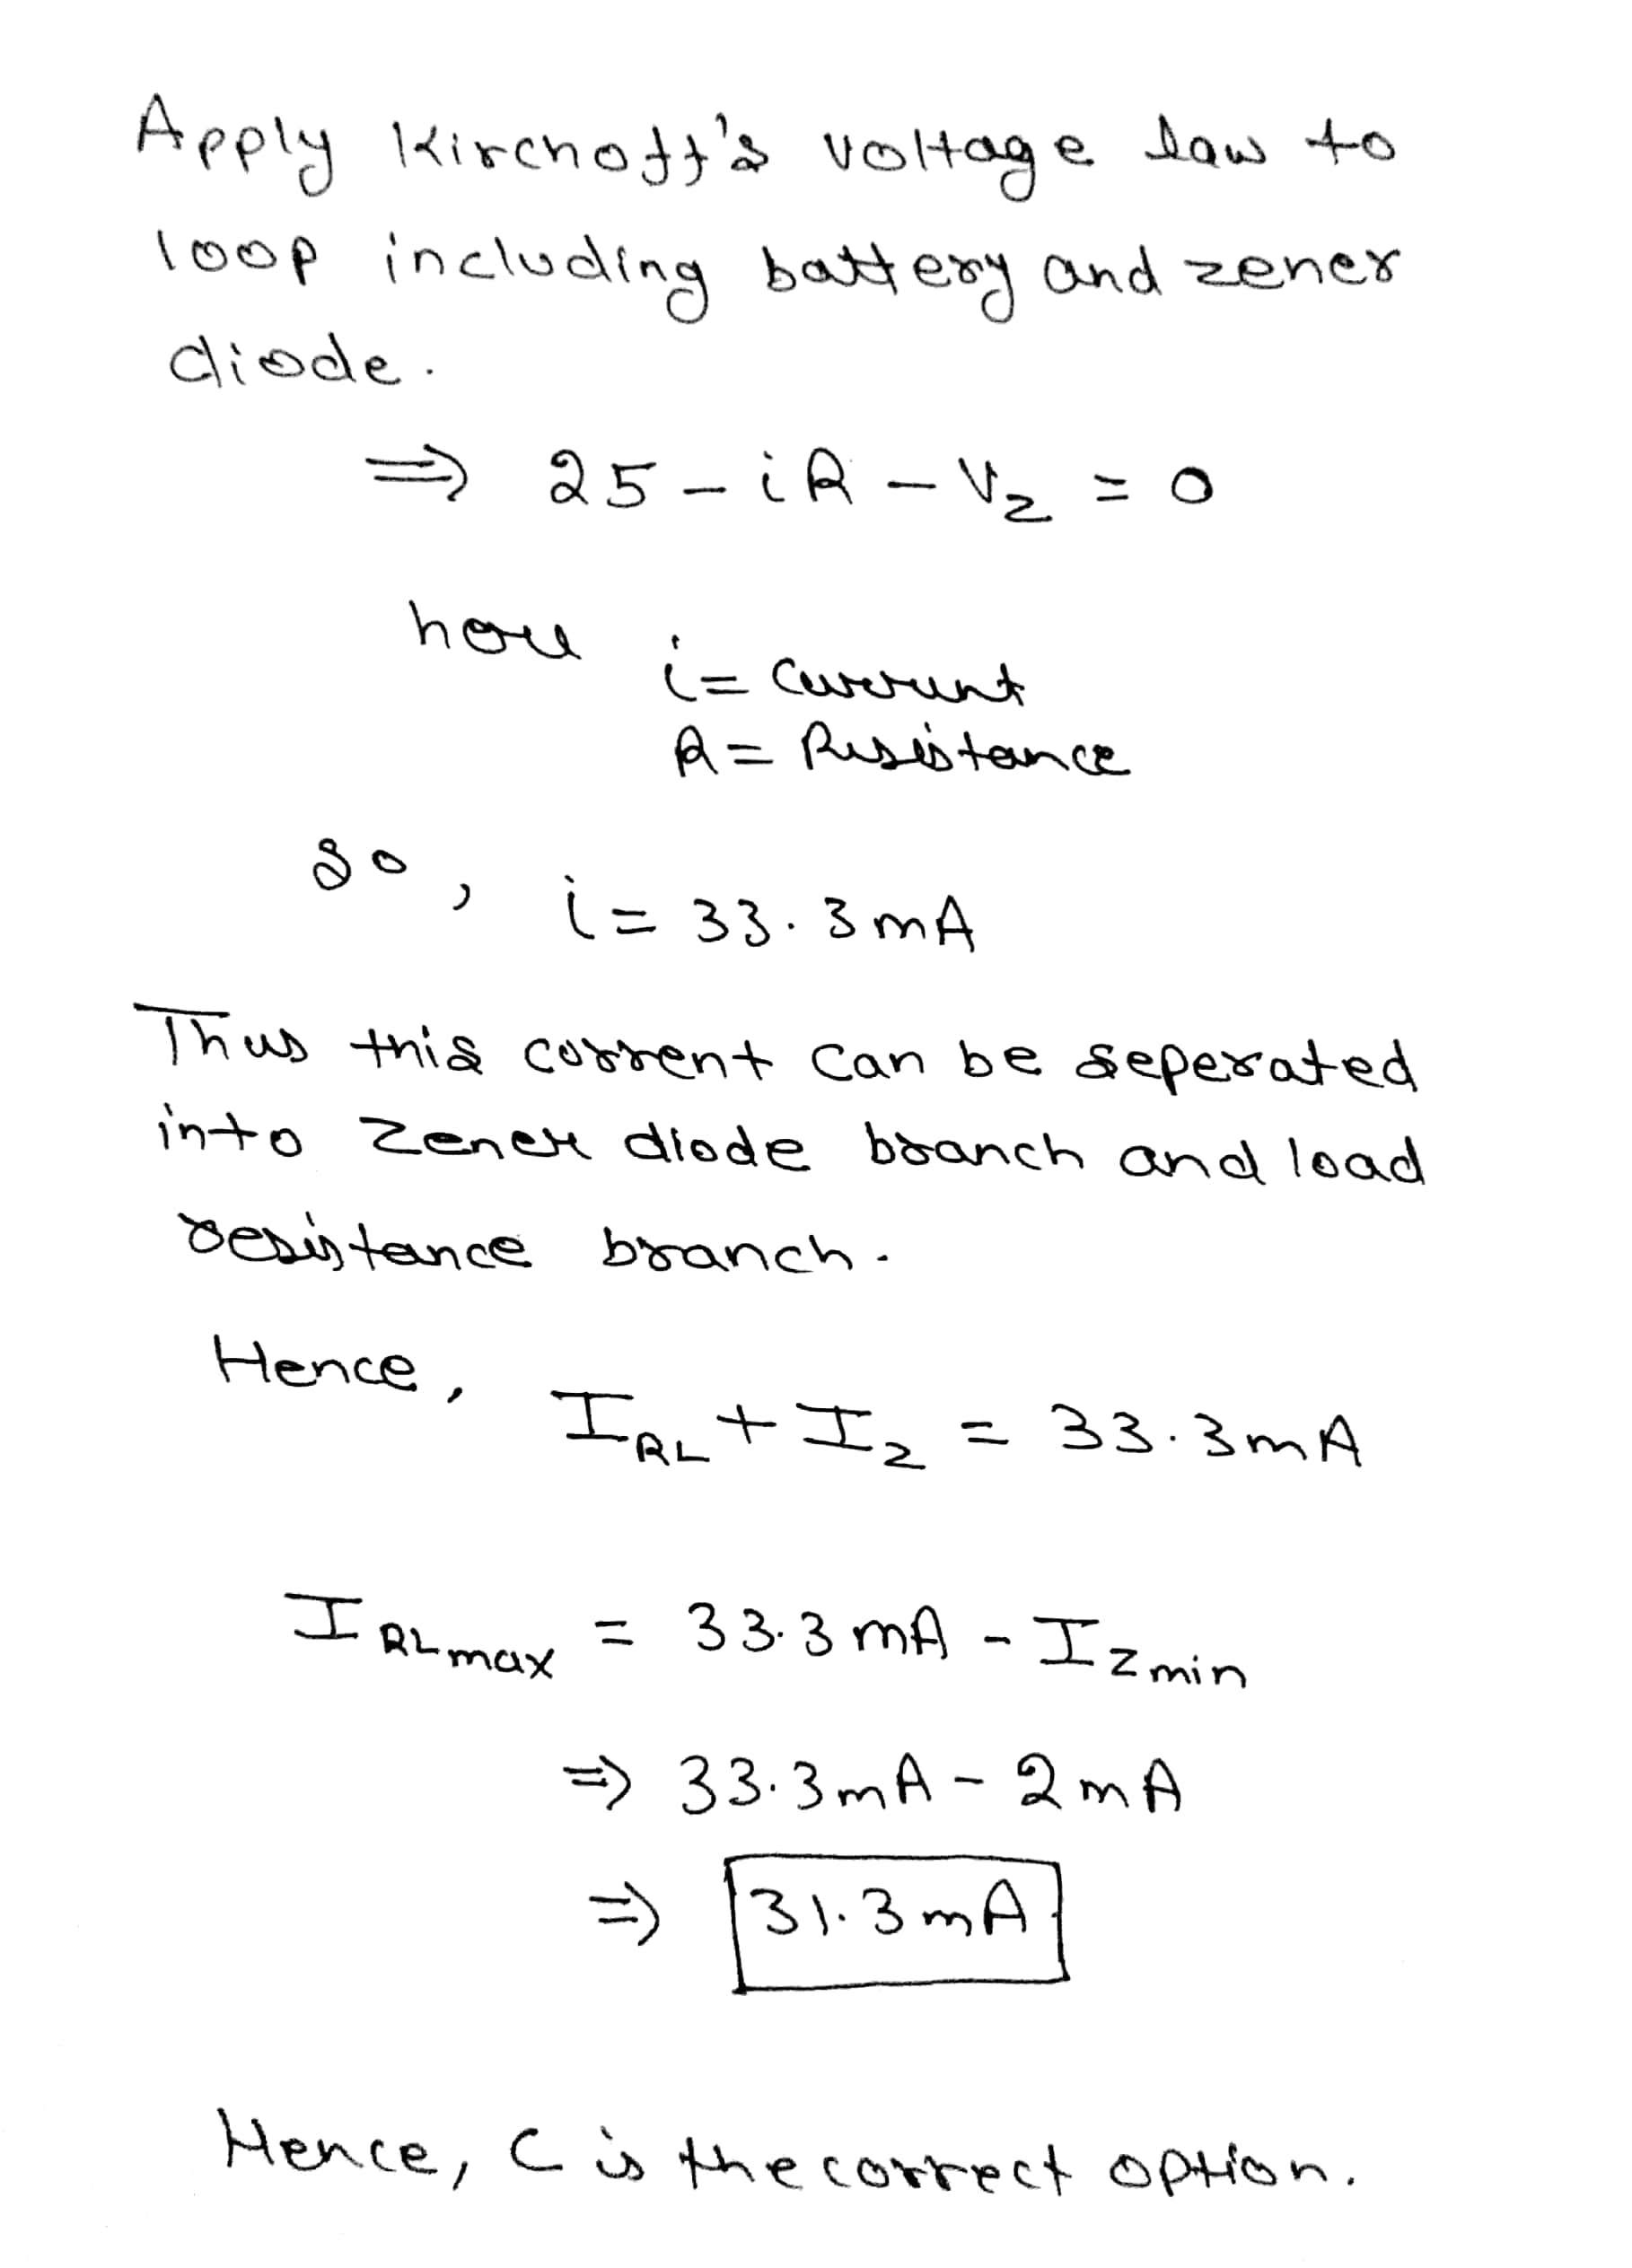 Apply Kirchoff's voltage law to
loop including battery and zener
diode.
⇒ 25 - iR - Vz = 0
here
i = Current
R = Resistance
So, i = 33.3 mA
Thus this current can be seperated
into zener diode branch and load
resistance branch.
Hence,
IRL + Iz = 33.3 mA
IRLmax = 33.3 mA - Izmin
⇒ 33.3 mA - 2 mA
⇒ 31.3 mA
Hence, C is the correct option.